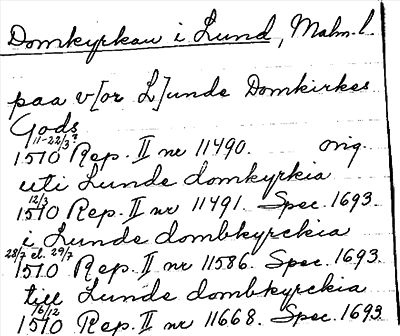 Domkyrkan i Lund, Malm. l.
paa v[or L]unde Domkirkes
Gods
11-22/3 1510 Rep. II nr 11490. orig.
uti Lunde domkyrkia
12/3 1510 Rep. II nr 11491. Spec. 1693.
i Lunde dombkyrckia
28/7 el. 29/7 1510 Rep. II nr 11586. Spec. 1693.
till Lunde dombkyrckia
6/12 1510 Rep. II nr 11668. Spec. 1693